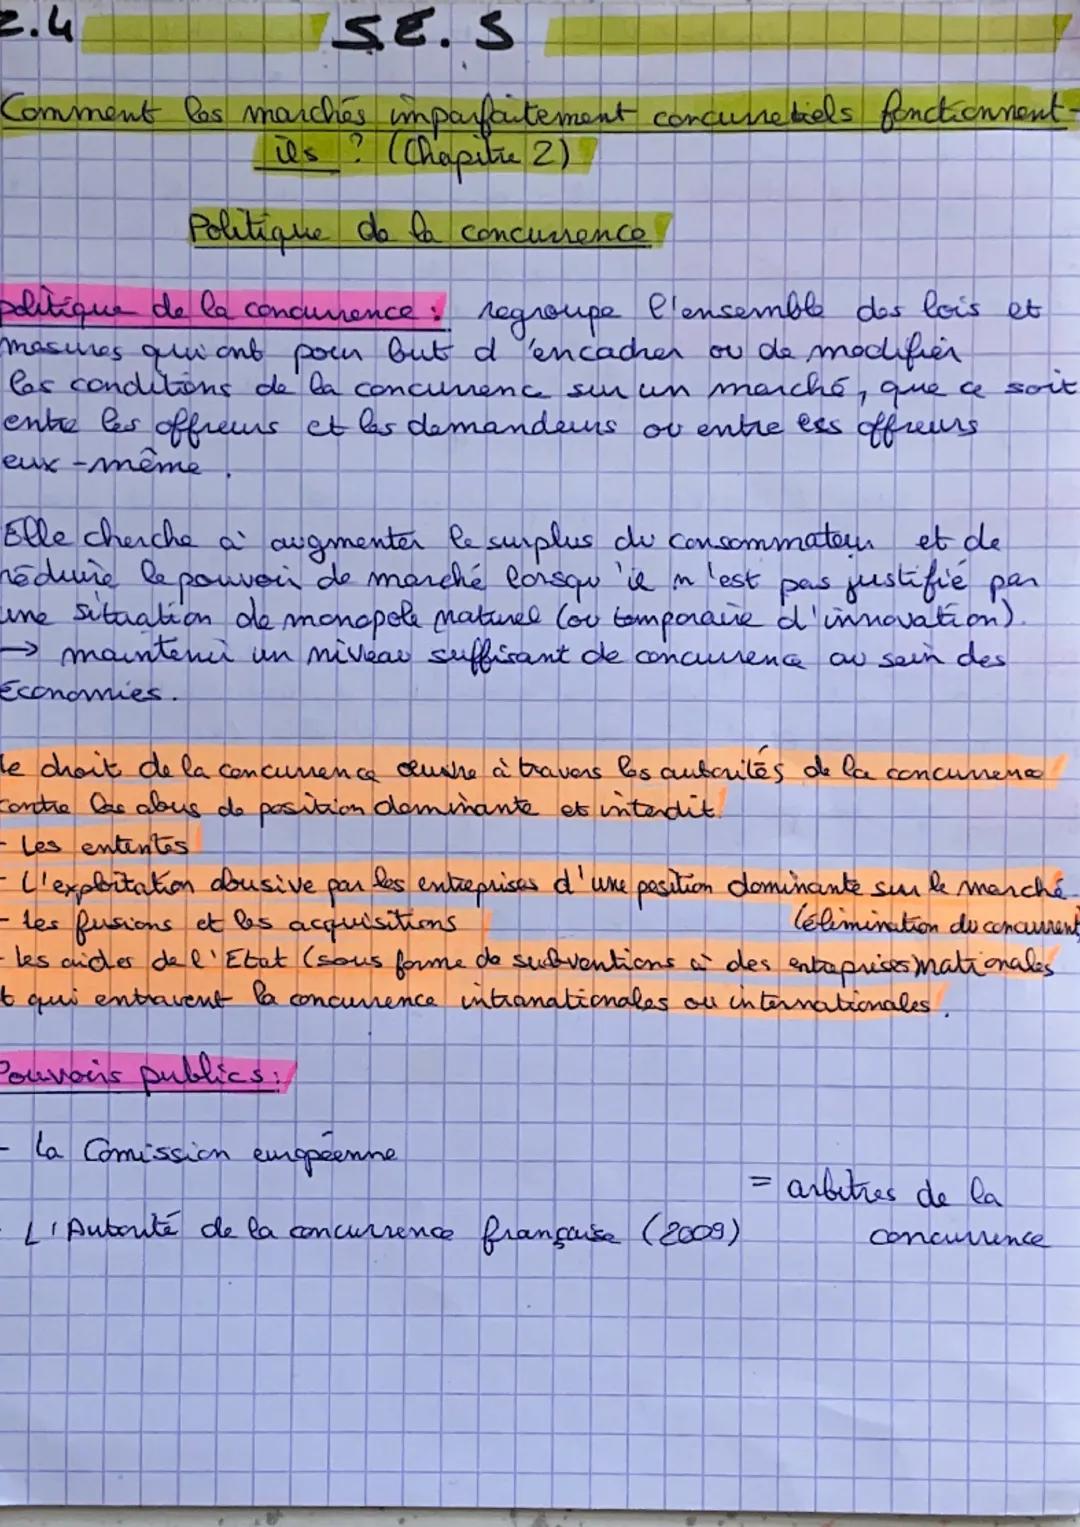 2.4 S.E.S
Comment les marchés imparfaitement concurretiels fonctionnent-
ils ? (Chapitre 2)
Politique de la concurrence
politique de la concurrence : regroupe l'ensemble des lois et
mesures qui ont pour but d'encadrer ou de modifier
les conditions de la concurrence sur un marché, que ce soit
entre les offreurs et les demandeurs ou entre les offreurs
eux-même.
Elle cherche à augmenter le surplus du consommateur et de
réduire le pouvoir de marché lorsqu'il n'est pas justifié par
une situation de monopole naturel (ou temporaire d'innovation).
→ maintenir un niveau suffisant de concurrence au sein des
Économies.
le droit de la concurrence œuvre à travers les autorités de la concurrence
contre les abus de position dominante et interdit:
- Les ententes
- L'exploitation abusive par les entreprises d'une position dominante sur le marché
(élimination du concurrent
- les fusions et les acquisitions
- les aides de l'Etat (sous forme de subventions à des entreprises nationales
t qui entravent la concurrence intranationales ou internationales.
Pouvoirs publics:
- la Comission européenne
= arbitres de la
concurrence
- L'Autorité de la concurrence française (2009)